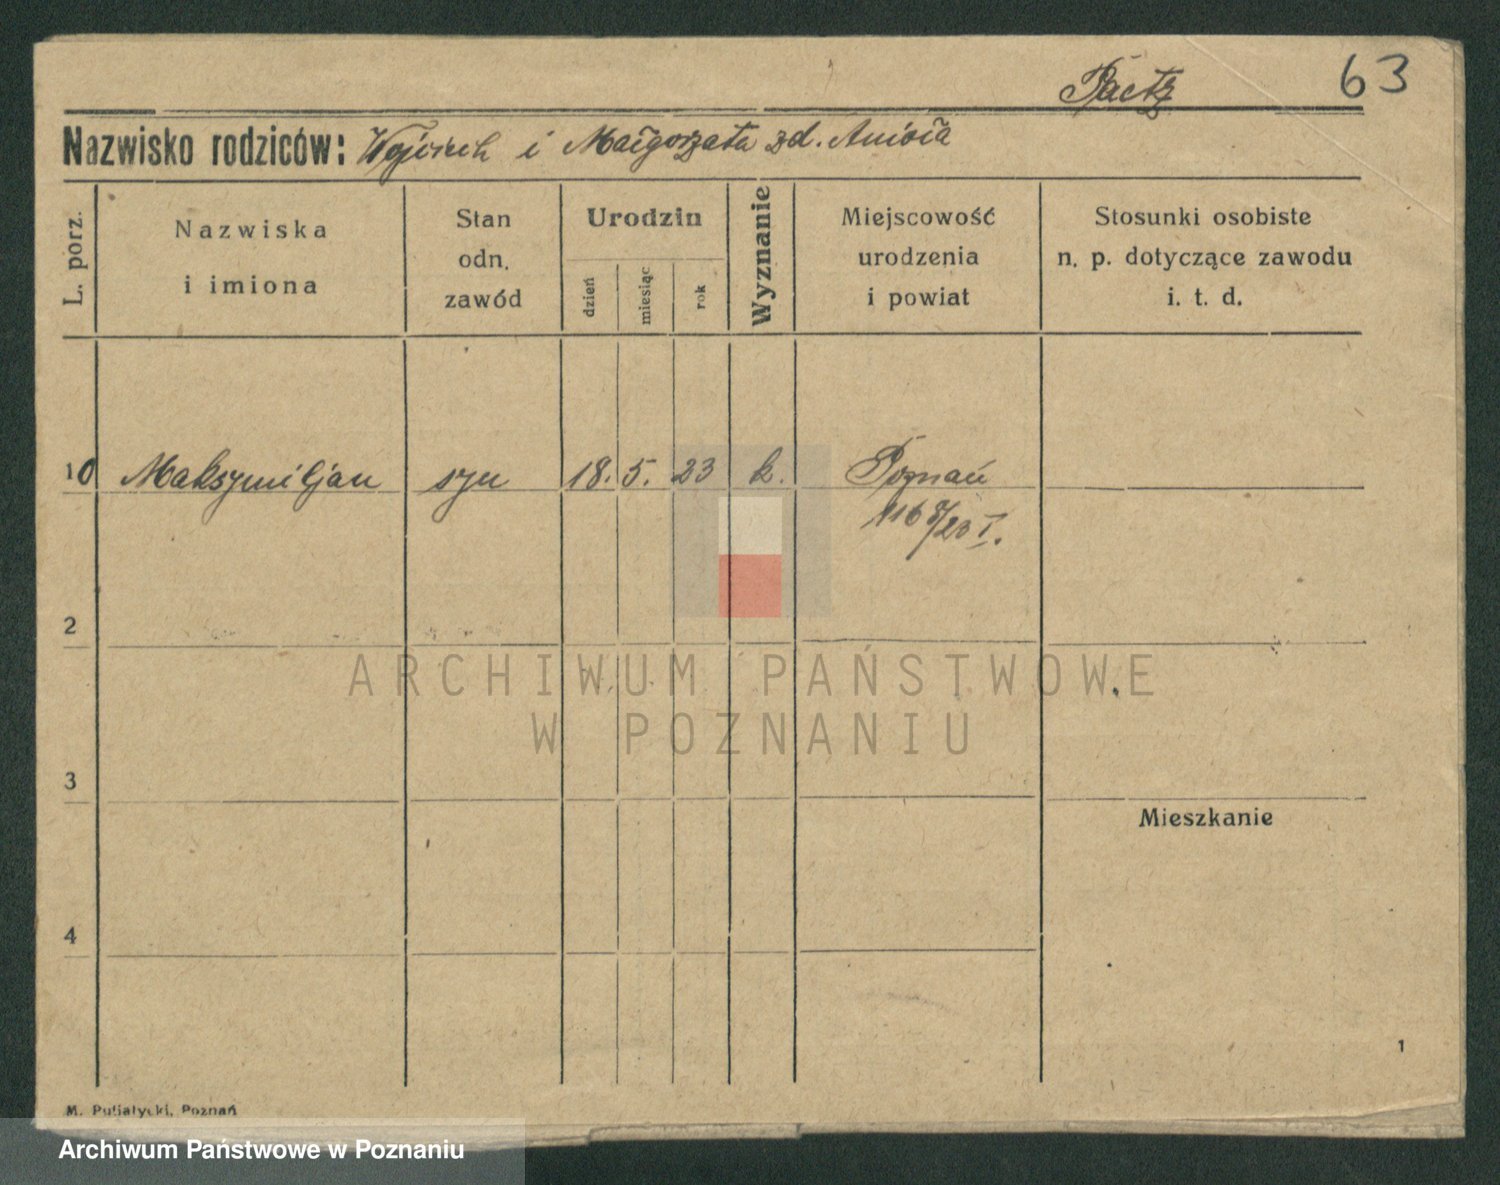 63
Pactz
Nazwisko rodziców: Wojciech i Małgorzata zd. Anioła
L. porz.
Nazwiska
i imiona
Stan
odn.
zawód
Urodzin
dzień
miesiąc
rok
Wyznanie
Miejscowość
urodzenia
i powiat
Stosunki osobiste
n. p. dotyczące zawodu
i. t. d.
10 Maksymiljan syn 18. 5. 23 k. Poznań
1168/23 I.
2
ARCHIWUM PAŃSTWOWE
W POZNANIU
3
Mieszkanie
4
1
M. Putiatycki, Poznań
Archiwum Państwowe w Poznaniu